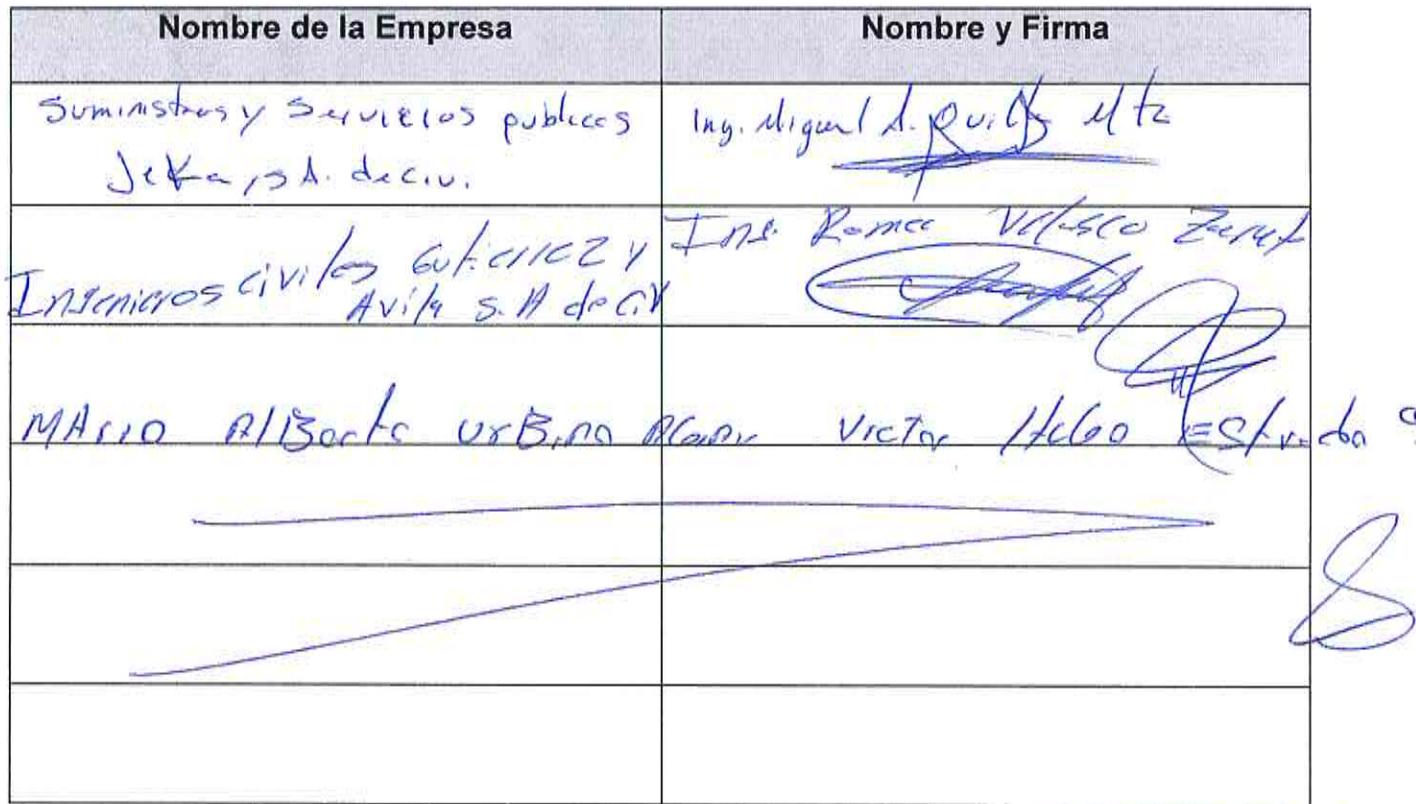 Nombre de la Empresa
Nombre y Firma
Suministros y Servicios publicos
Jeka, S.A. de C.V.
Ing. Miguel A. Mtz
Ingenieros civiles Gutierrez y
Avila S.A de CV
Ing. Velasco
Mario Alberto Urbina
Victor Hugo Estrada